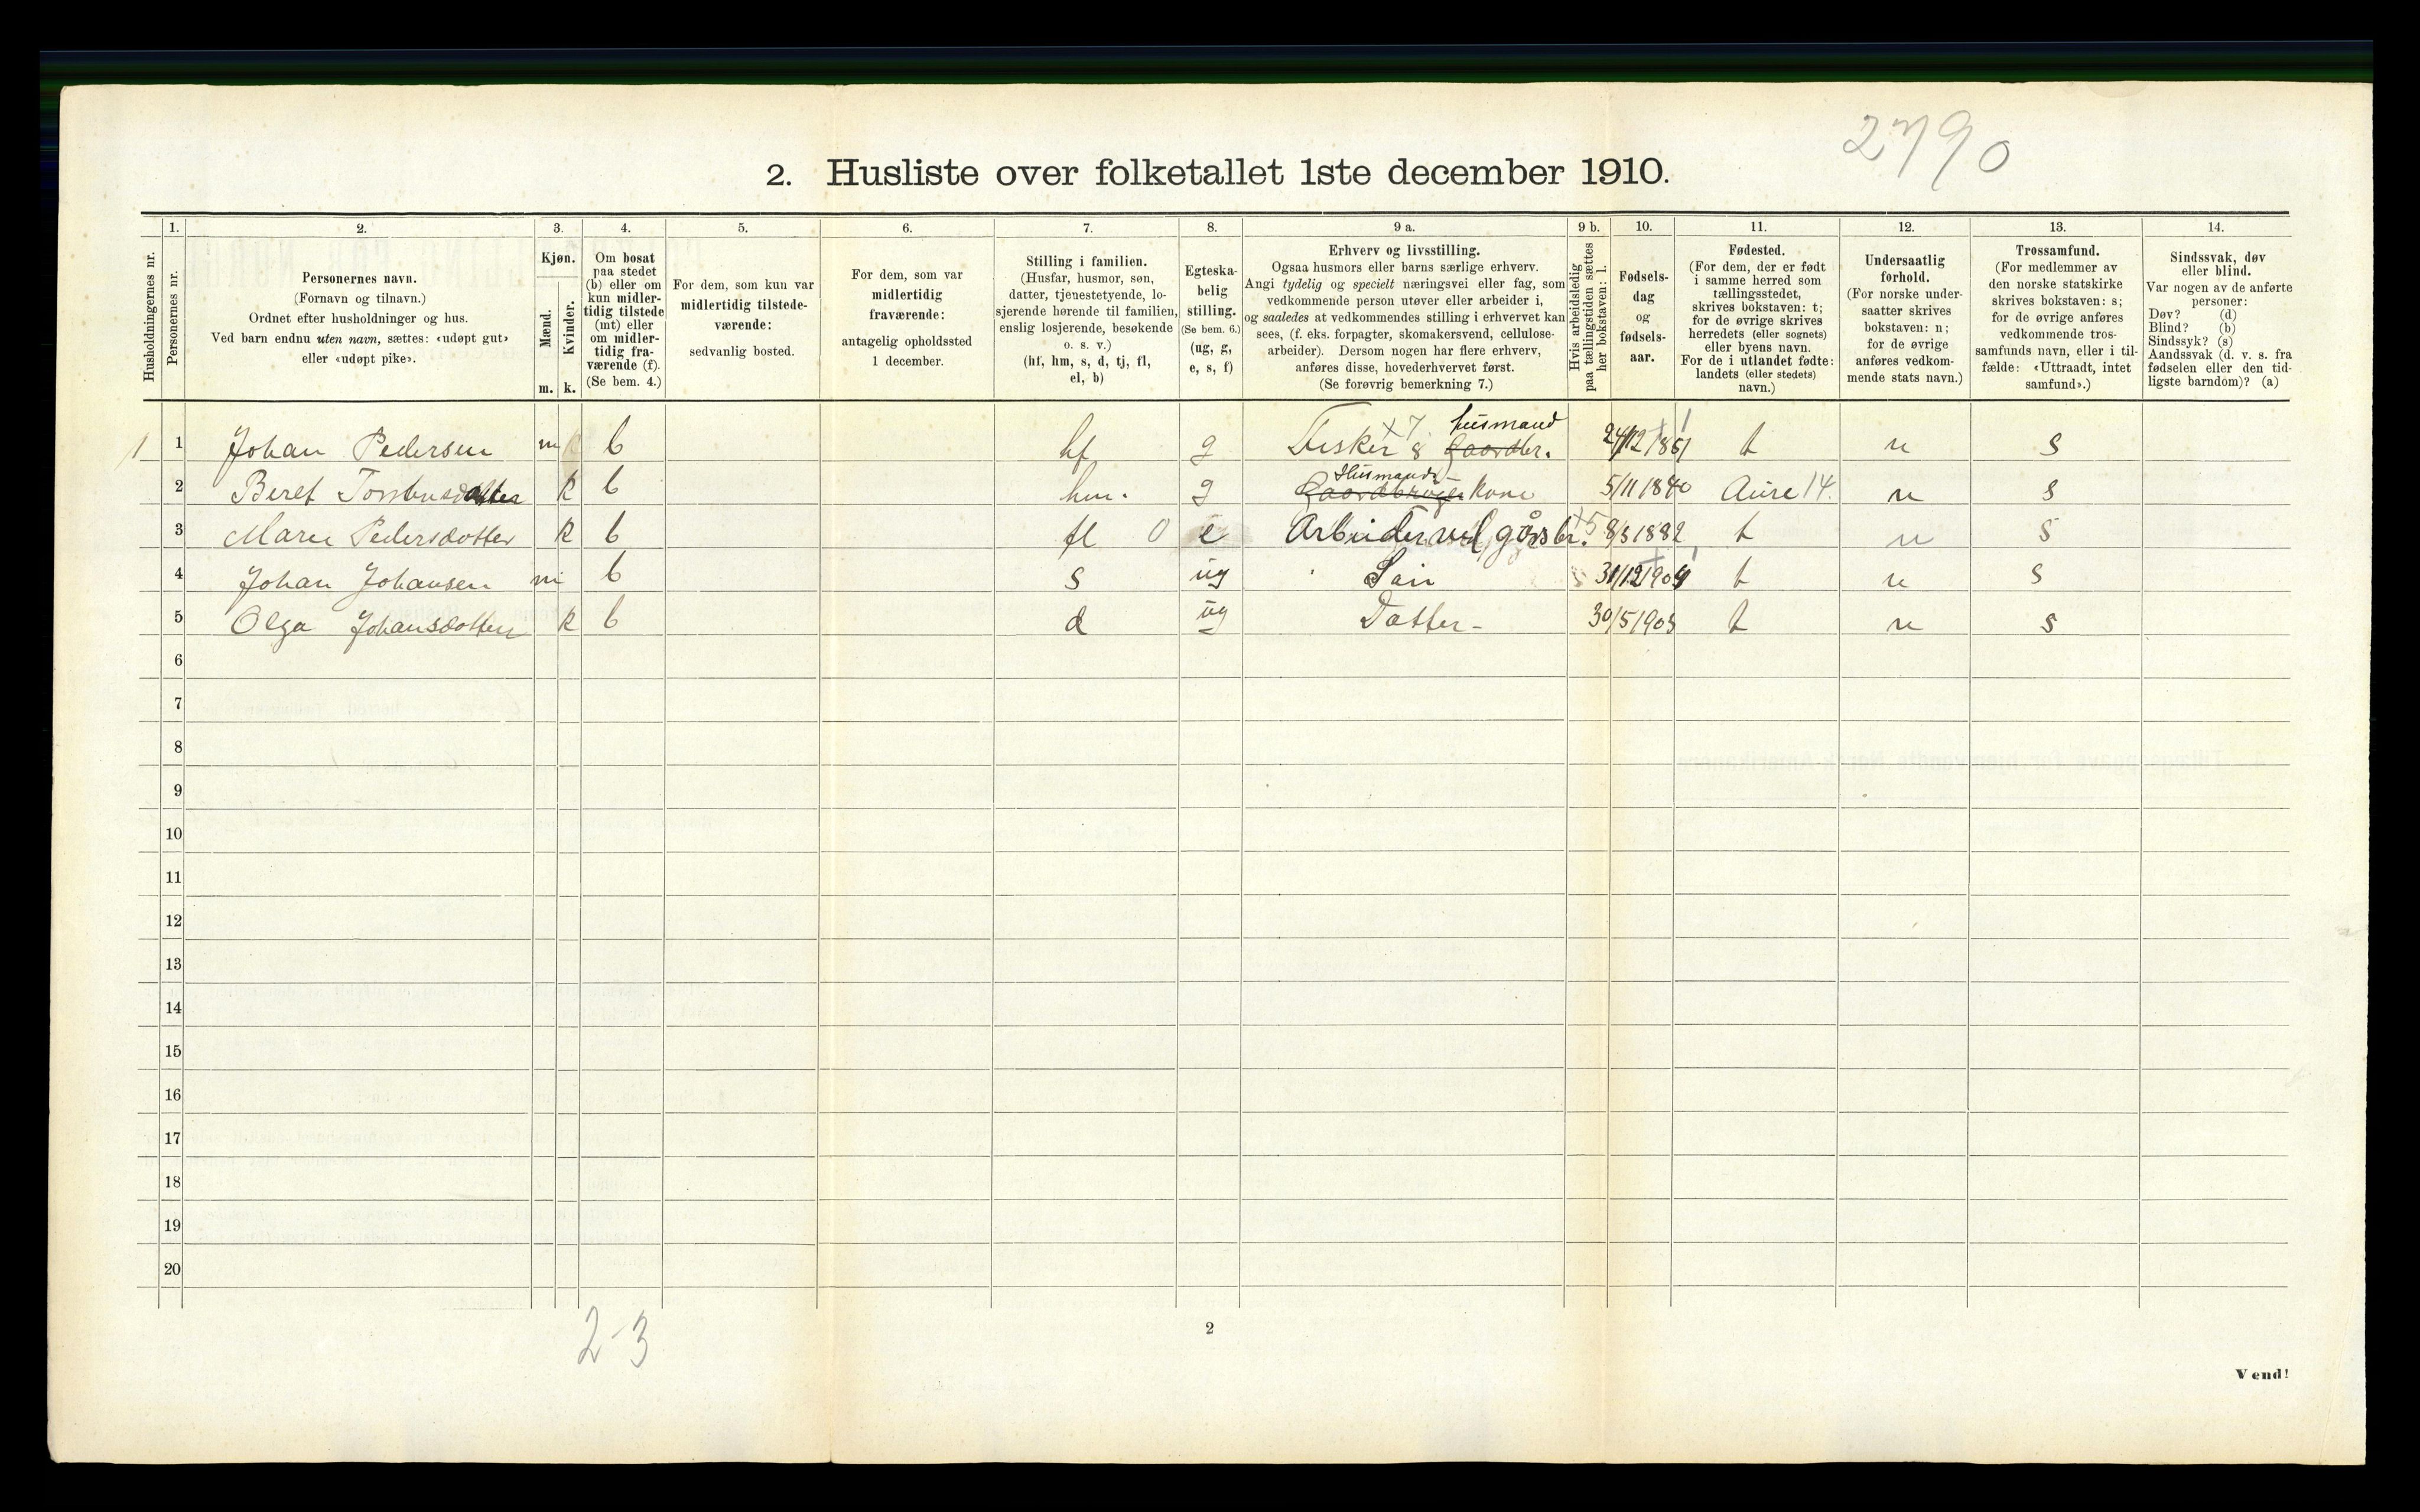 2790
2. Husliste over folketallet 1ste december 1910.
Husholdningernes nr.
1.
Personernes nr.
2.
Personernes navn.
(Fornavn og tilnavn.)
Ordnet efter husholdninger og hus.
Ved barn endnu uten navn, sættes: «udøpt gut»
eller «udøpt pike».
3.
Kjøn.
Mænd.
Kvinder.
m. k.
4.
Om bosat
paa stedet
(b) eller om
kun midler-
tidig tilstede
(mt) eller
om midler-
tidig fra-
værende (f).
(Se bem. 4.)
5.
For dem, som kun var
midlertidig tilstede-
værende:
sedvanlig bosted.
6.
For dem, som var
midlertidig
fraværende:
antagelig opholdssted
1 december.
7.
Stilling i familien.
(Husfar, husmor, søn,
datter, tjenestetyende, lo-
sjerende hørende til familien,
enslig losjerende, besøkende
o. s. v.)
(hf, hm, s, d, tj, fl,
el, b)
8.
Egteska-
belig
stilling.
(Se bem. 6.)
(ug, g,
e, s, f)
9 a.
Erhverv og livsstilling.
Ogsaa husmors eller barns særlige erhverv.
Angi tydelig og specielt næringsvei eller fag, som
vedkommende person utøver eller arbeider i,
og saaledes at vedkommendes stilling i erhvervet kan
sees, (f. eks. forpagter, skomakersvend, cellulose-
arbeider). Dersom nogen har flere erhverv,
anføres disse, hovederhvervet først.
(Se forøvrig bemerkning 7.)
9 b.
Hvis arbeidsledig
paa tællingstiden sættes
her bokstaven: l.
10.
Fødsels-
dag
og
fødsels-
aar.
11.
Fødested.
(For dem, der er født
i samme herred som
tællingsstedet,
skrives bokstaven: t;
for de øvrige skrives
herredets (eller sognets)
eller byens navn.
For de i utlandet fødte:
landets (eller stedets)
navn.)
12.
Undersaatlig
forhold.
(For norske under-
saatter skrives
bokstaven: n;
for de øvrige
anføres vedkom-
mende stats navn.)
13.
Trossamfund.
(For medlemmer av
den norske statskirke
skrives bokstaven: s;
for de øvrige anføres
vedkommende tros-
samfunds navn, eller i til-
fælde: «Uttraadt, intet
samfund».)
14.
Sindssvak, døv
eller blind.
Var nogen av de anførte
personer:
Døv? (d)
Blind? (b)
Sindssyk? (s)
Aandssvak (d. v. s. fra
fødselen eller den tid-
ligste barndom)? (a)
husmand
1 1 Johan Pedersen m b hf g Fisker & Gaardbr. t n s
Husmands
2 Beret k b hm. g Gaardbruger kone 5/11 1840 Aure 14. n s
3 Maren Pedersdotter k b fl 0 e Arbeider ved gårsbr. 8/3 1882 t n s
4 Johan Johansen m b s ug Søn t n s
5 Olga Johansdotter k b d ug Datter - t n s
6
7
8
9
10
11
12
13
14
15
16
17
18
19
20
2-3
2
Vend!